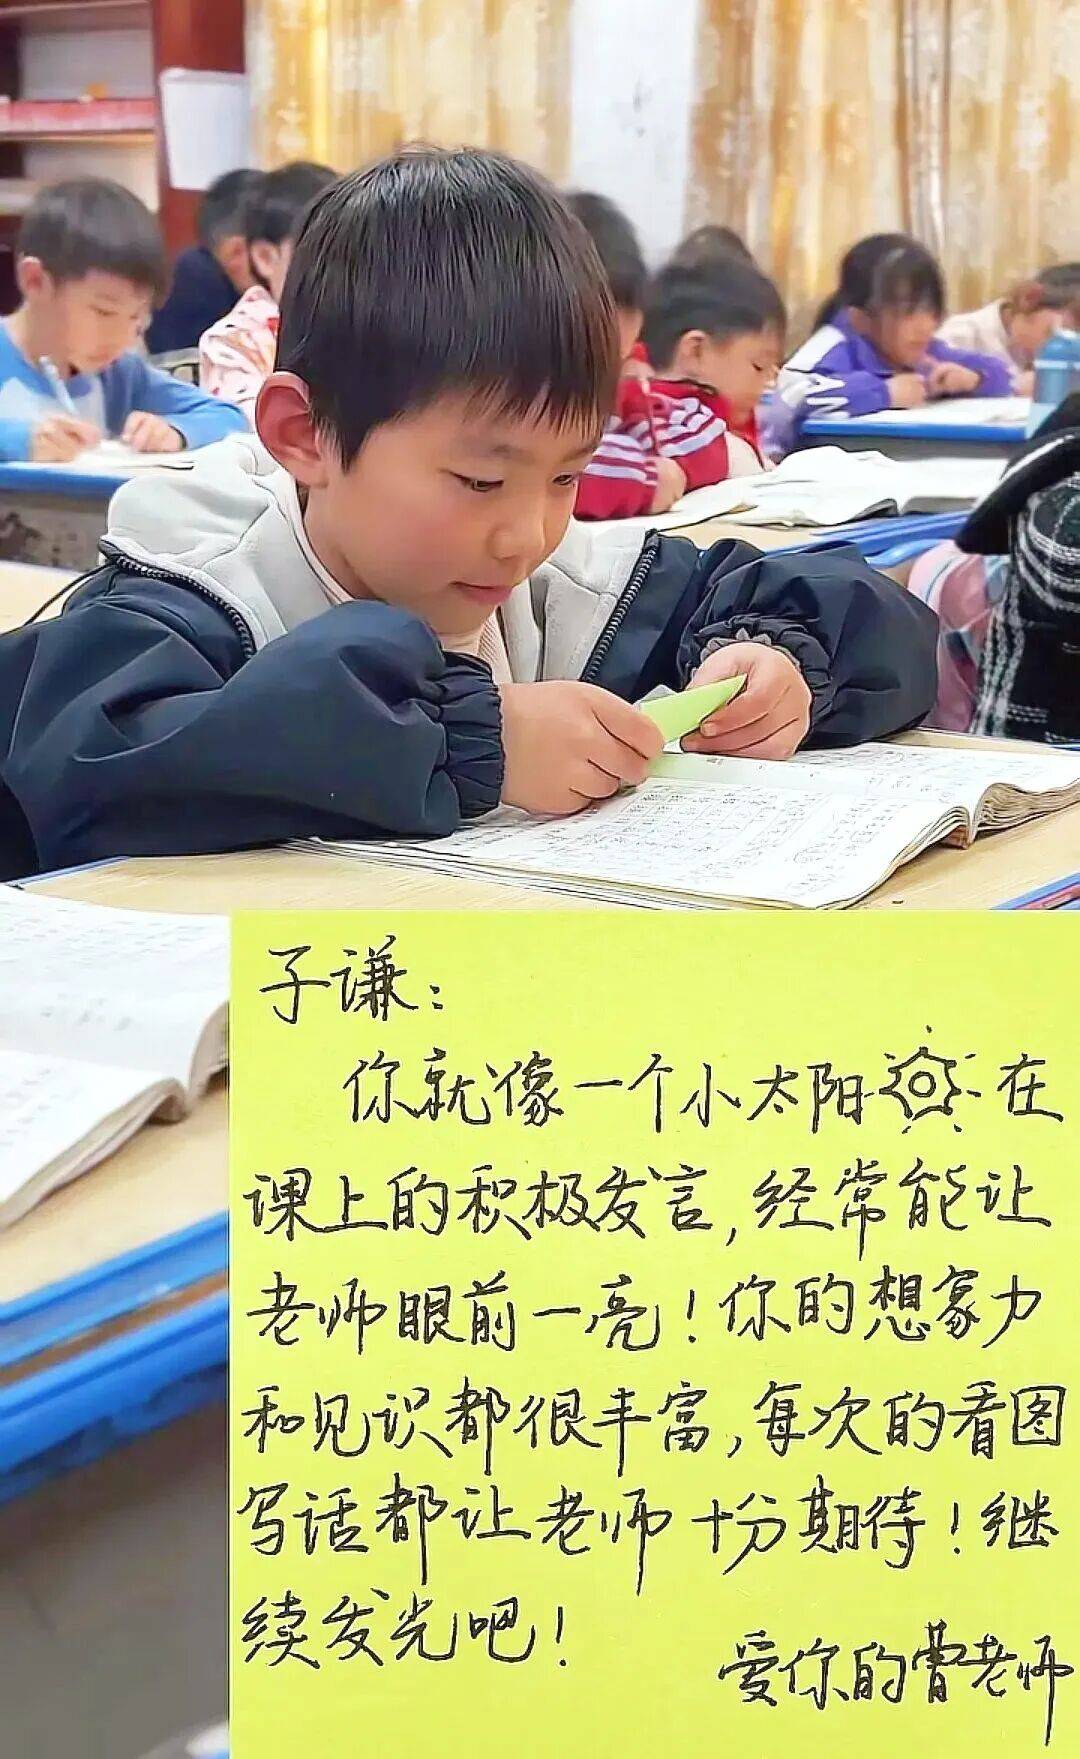 子谦：
你就像一个小太阳在
课上的积极发言，经常能让
老师眼前一亮！你的想象力
和见识都很丰富，每次的看图
写话都让老师十分期待！继
续发光吧！
爱你的曹老师